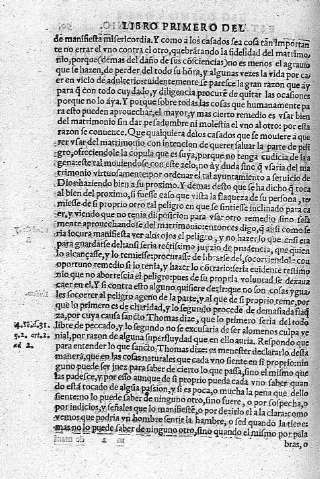 LIBRO PRIMERO DEL
de manifiesta misericordia. Y como a los casados sea cosa tan importan
te no errar el vno contra el otro, quebrãtando la fidelidad del matrimo
nio, porque (demas del daño de sus cõsciencias) no es menos el agrauio
que se hazen, de perder del todo su hõra, y algunas vezes la vida por ca
er en vicio de adulterio: euidentemente paresce la gran razon que ay
para q̃ con todo cuydado, y diligencia procurẽ de quitar las ocasiones
porque no lo aya. Y porque sobre todas las cosas que humanamente pa
ra esto pueden aprouechar, el mayor, y mas cierto remedio es vsar bien
del matrimonio sin dar pesadumbre ni molestia el vno al otro: por esta
razon se conuence. Que qualquiera delos casados que se mouiere a que
rer vsar del matrimonio con intencion de querer saluar la parte de peli
gro, ofreciendole la copula que es suya, porque no tenga cudicia de la
gena: este tal mouiendose con este zelo, no ay duda sino q̃ vsaria del ma
trimonio virtuosamente: por ordenar el tal ayuntamiento a seruicio de
Dios haziendo bien a su proximo. Y demas desto que se ha dicho q̃ toca
al bien del proximo, si fuesse caso que vista la flaqueza de su persona, te
miesse de si proprio otro tal peligro en que se sintiesse inclinado para ca
er, y viendo que no tenia disposicion para vsar otro remedio sino
mente aprouechandose del matrimonio: entonces digo, q̃ assi como se
ria locura manifiesta ver a los ojos el peligro, y no hazerlo que
para guardarse del: ansi seria rectissimo juyzio de prudencia, que quien
lo alcançasse, y lo temiesse: procurasse de librarse del, socorriendo con
oportuno remedio si lo tenia, y hazer lo cõtrario: seria euidente testimo
nio que no aborrescia el peligro: pues de su propria voluntad se dexaua
caer en el. Y si contra esto alguno quisiere dezir que no son cosas ygua
les socorrer al peligro ageno de la parte, y al que de si proprio teme, por
que lo primero es de charidad, y lo segundo procede de demasiada flaq̃
za, por cuya causa sancto Thomas dize, que lo primero seria del todo
4. d. 31. libre de peccado, y lo segundo no se escusaria de ser alomenos culpa ve
q. 2. art. 2. nial, por razon de alguna superfluydad que en ello auria. Respondo que
ad 2. para entender lo que sancto Thomas dize: es menester declararlo desta
manera, que en las cosas naturales que cada vno siente en si proprio: nin
guno puede ser juez para saber de cierto lo que passa, sino el mismo que
las padesce, y por esso aunque de si proprio pueda cada vno saber quan
do està tocado de alguna passion, y si es poca, o mucha la pena que dello
siente: no lo puede saber de ninguno otro, sino fuere, o por sospecha,
por indicios, y señales que lo manifiestẽ, o por dezirlo el a la clara: como
vemos que podria vn hombre sentir la hambre, o sed quando la tiene:
mas no lo puede saber de ninguno otro, sino quando el mismo por pala
bras, o